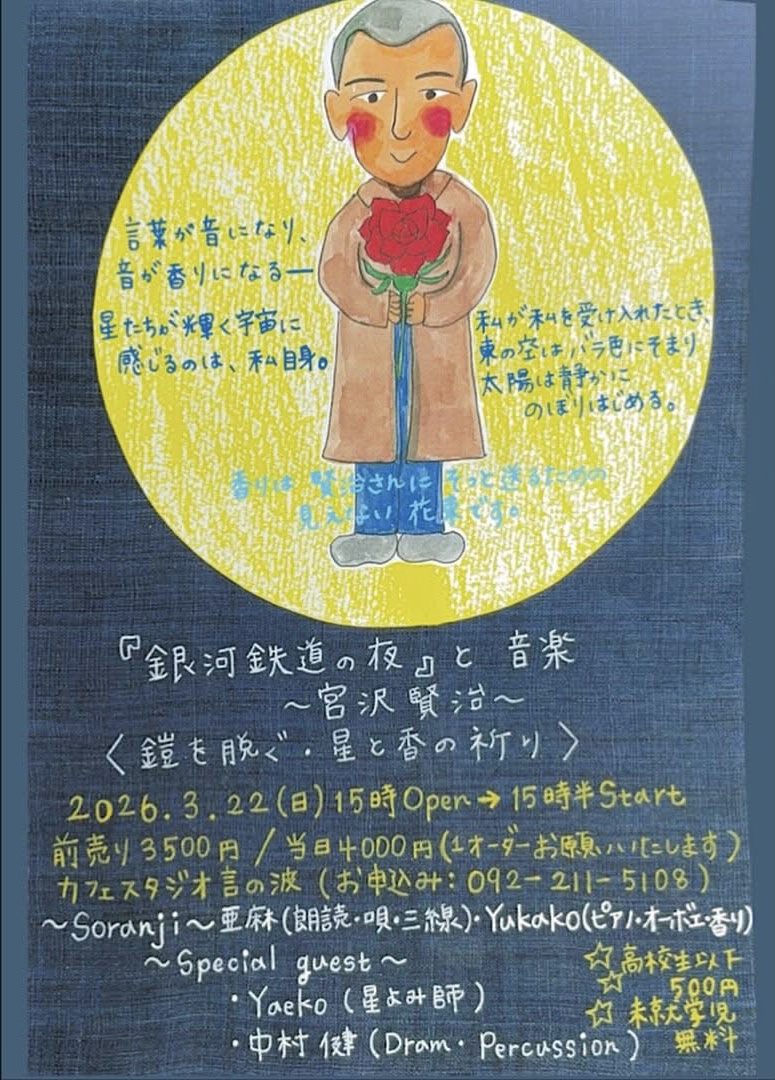 言葉が音になり、
音が香りになる―
星たちが輝く宇宙に
感じるのは、私自身。
私が私を受け入れたとき、
東の空はバラ色にそまり
太陽は静かに
のぼりはじめる。
香りは 賢治さんに そっと送るための
見えない 花束です。
『銀河鉄道の夜』と 音楽
～宮沢賢治～
〈鎧を脱ぐ・星と香の祈り〉
2026.3.22(日)15時Open→15時半Start
前売り3500円/当日4000円(1オーダーお願いいたします)
カフェスタジオ言の波(お申込み:092-211-5108)
～Soranji～亜麻(朗読・唄・三線)・Yukako(ピアノ・オーボエ・香り)
～Special guest～
・Yaeko(星よみ師)
・中村健(Dram・Percussion)
☆高校生以下
☆500円
☆未就学児
無料